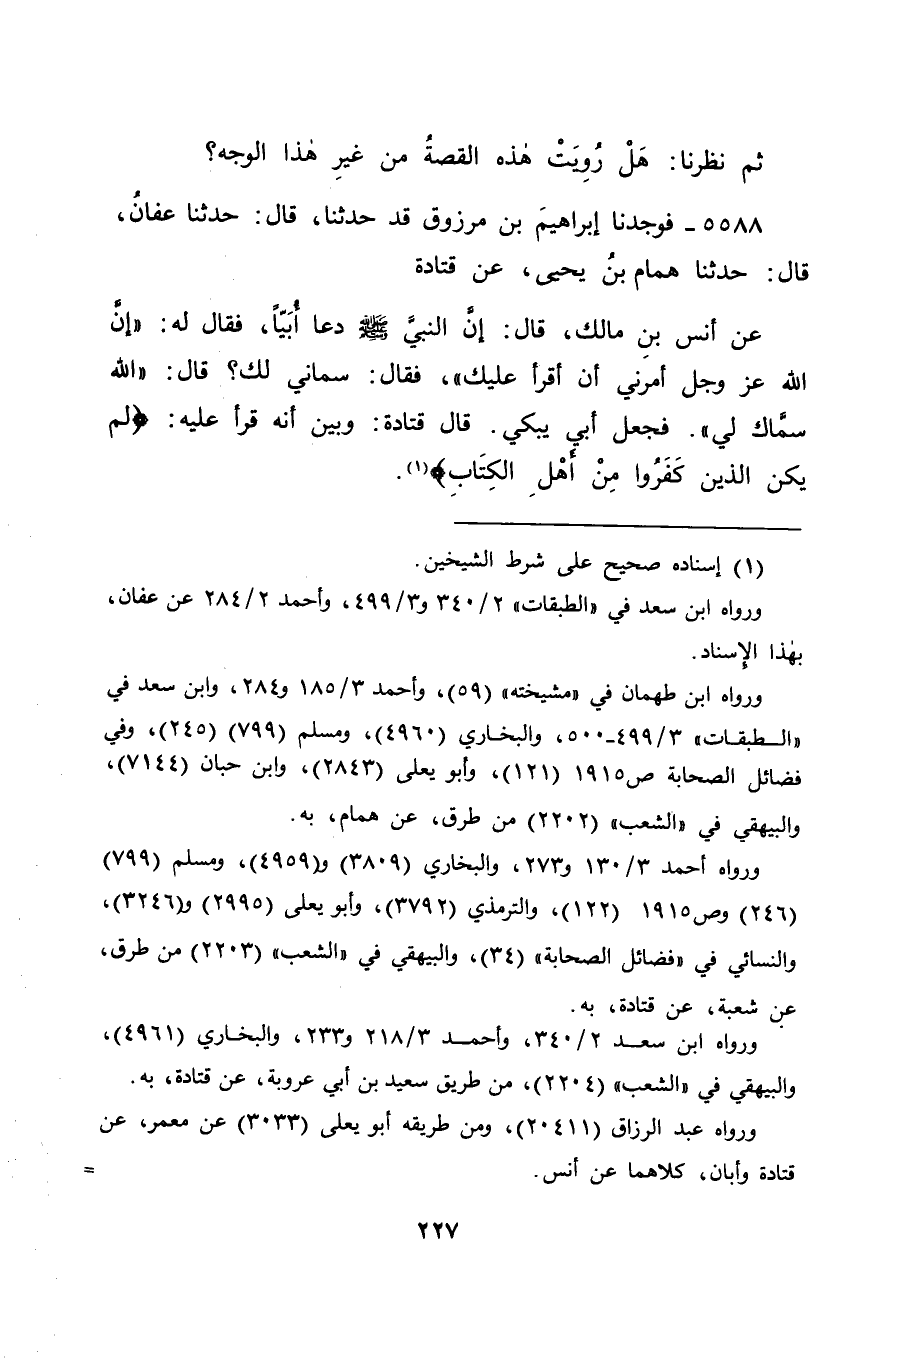 ثم نظرنا: هَلْ رُوِيَتْ هٰذه القصةُ من غيرِ هٰذا الوجه؟
٥٥٨٨ ـ فوجدنا إبراهيمَ بن مرزوق قد حدثنا، قال: حدثنا عفانُ،
قال: حدثنا همام بنُ يحيى، عن قتادة
عن أنس بنِ مالك، قال: إنَّ النبيَّ ﷺ دعا أُبَيّاً، فقال له: «إنَّ
الله عز وجل أمرني أن أقرأ عليك»، فقال: سماني لك؟ قال: «الله
سمَّاك لي». فجعل أبي يبكي. قال قتادة: وبين أنه قرأ عليه: ﴿لم
يكن الذين كَفَرُوا مِنْ أَهْلِ الكِتَابِ﴾(١).
(١) إسناده صحيح على شرط الشيخين.
ورواه ابن سعد في «الطبقات» ٣٤٠/٢ و٤٩٩/٣، وأحمد ٢٨٤/٢ عن عفان،
بهٰذا الإِسناد.
ورواه ابن طهمان في «مشيخته» (٥٩)، وأحمد ١٨٥/٣ و٢٨٤، وابن سعد في
«الـطبقـات» ٤٩٩/٣ـ٥٠٠، والبخـاري (٤٩٦٠)، ومسلم (٧٩٩) (٢٤٥)، وفي
فضائل الصحابة ص١٩١٥ (١٢١)، وأبو يعلى (٢٨٤٣)، وابن حبان (٧١٤٤)،
والبيهقي في «الشعب» (٢٢٠٢) من طرق، عن همام، به.
ورواه أحمد ١٣٠/٣ و٢٧٣، والبخاري (٣٨٠٩) و(٤٩٥٩)، ومسلم (٧٩٩)
(٢٤٦) وص١٩١٥ (١٢٢)، والترمذي (٣٧٩٢)، وأبو يعلى (٢٩٩٥) و(٣٢٤٦)،
والنسائي في «فضائل الصحابة» (٣٤)، والبيهقي في «الشعب» (٢٢٠٣) من طرق،
عن شعبة، عن قتادة، به.
ورواه ابن سعـــد ٣٤٠/٢، وأحمـــد ٢١٨/٣ و٢٣٣، والبخـاري (٤٩٦١)،
والبيهقي في «الشعب» (٢٢٠٤)، من طريق سعيد بن أبي عروبة، عن قتادة، به.
ورواه عبد الرزاق (٢٠٤١١)، ومن طريقه أبو يعلى (٣٠٣٣) عن معمر، عن
قتادة وأبان، كلاهما عن أنس. =
٢٢٧